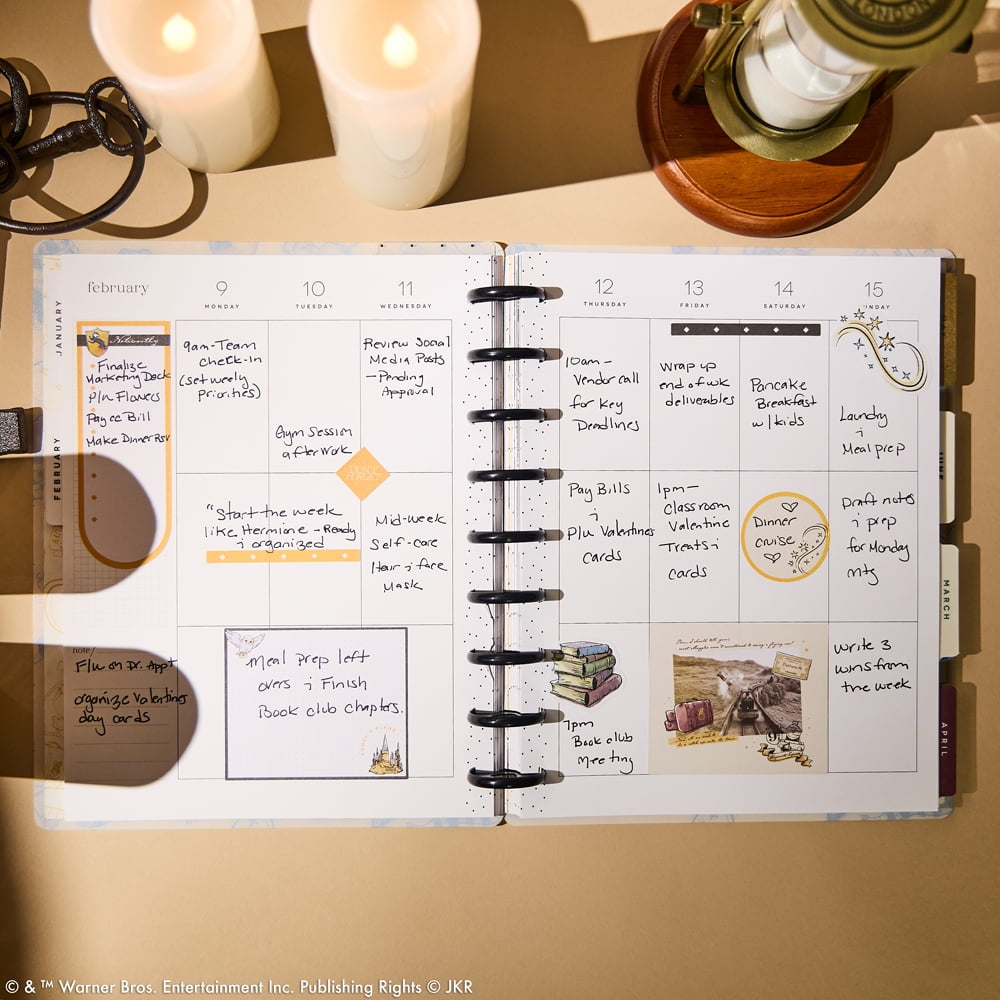 LONDON
JANUARY
FEBRUARY
february
Noteworthy
Finalize
Marketing Deck
P/U Flowers
Pay cc Bill
Make Dinner Rsv
note/
F/u on Dr. Appt
organize valentines
day cards
9
MONDAY
9am-Team
check-in
(set weely
priorities)
10
TUESDAY
Gym Session
after work
11
WEDNESDAY
Review Social
Media Posts
- Pending
Approval
DON'T
FORGET
"Start the week
like Hermine - Ready
i organized
Mid-week
Self-care
Hair i face
Mask
Meal prep left
overs i Finish
Book club chapters.
12
THURSDAY
10am-
Vendor call
for key
Deadlines
Pay Bills
i
P/u Valentines
cards
7pm
Book club
Meeting
13
FRIDAY
wrap up
end of wk
deliverables
1pm-
Classroom
Valentine
Treats i
cards
14
SATURDAY
Pancake
Breakfast
w/kids
Dinner
cruise
15
UNDAY
Laundry
i
Meal prep
Draft notes
i prep
for Monday
mtg
write 3
wins from
the week
MARCH
APRIL
© & ™ Warner Bros. Entertainment Inc. Publishing Rights © JKR